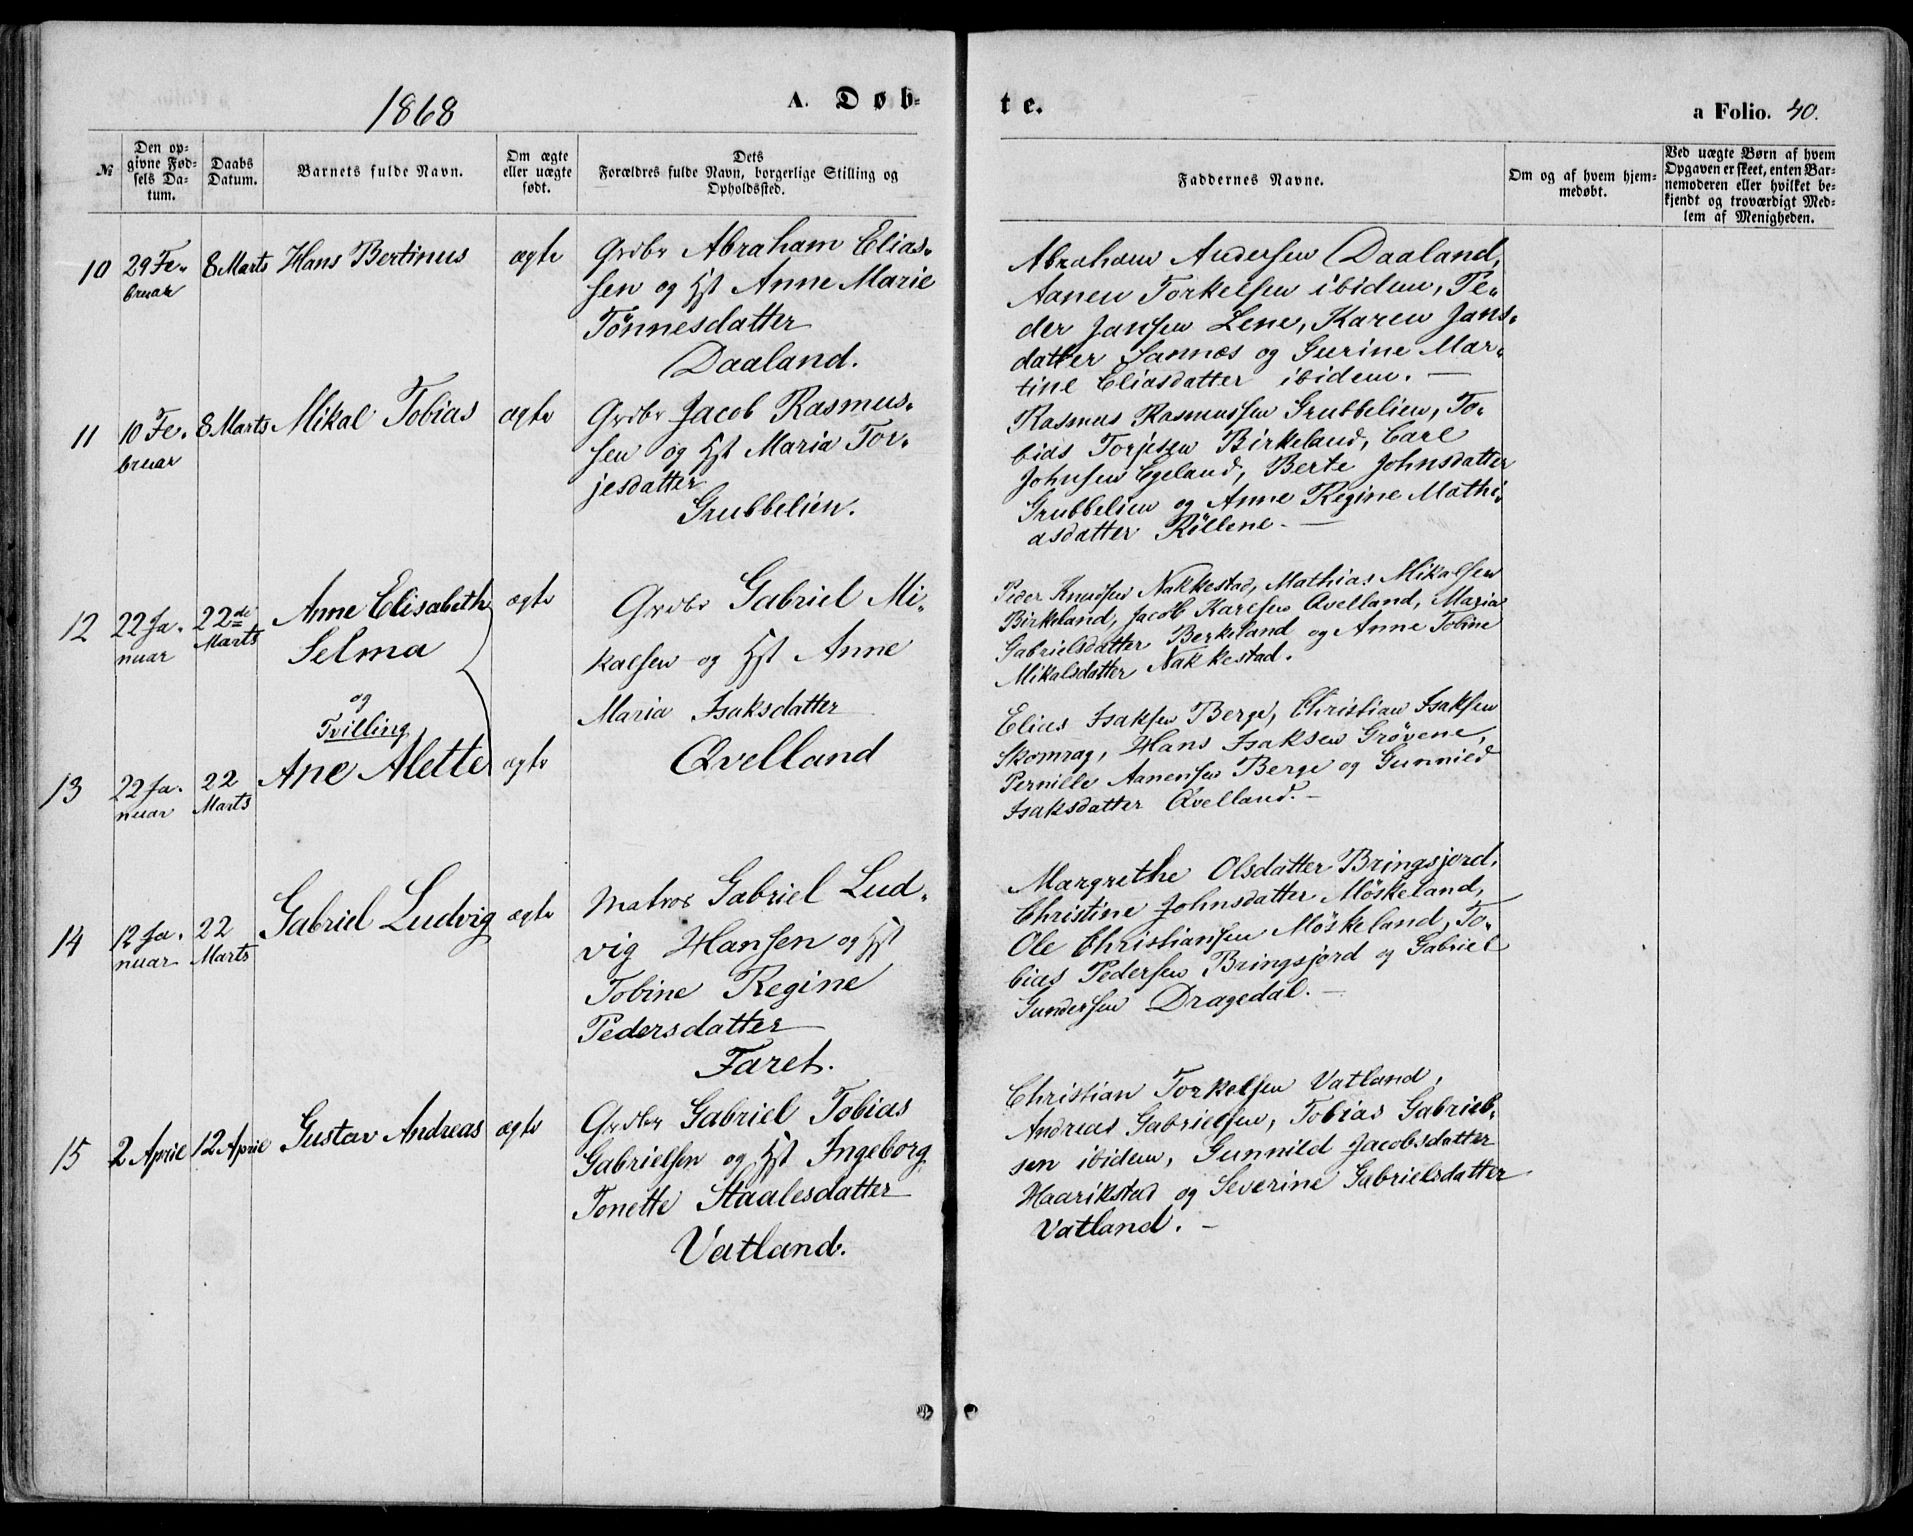 1868
A. Døb-
te.
a Folio. 40.
№
Den op-
givne Fød-
sels Da-
tum.
Daabs
Datum.
Barnets fulde Navn.
Om ægte
eller uægte
født.
Dets
Forældres fulde Navn, borgerlige Stilling og
Opholdssted.
Faddernes Navne.
Om og af hvem hjem-
medøbt.
Ved uægte Børn af hvem
Opgaven er skeet, enten Bar-
nemoderen eller hvilket be-
kjendt og troværdigt Med-
lem af Menigheden.
10
29 Fe-
bruar
8 Marts
Hans Bertinus
ægte
Grdbr Abraham Elias-
sen og Hst Anne Marie
Tönnesdatter
Daaland.
Abraham Andersen Daaland,
Aanen Torkelsen ibidem, Pe-
der Jansen Lene, Karen Jans-
datter Sannæs og Gurine Mar-
tine Eliasdatter ibidem. —
11
10 Fe-
bruar
8 Marts
Mikal Tobias
ægte
Grdbr Jacob Rasmus-
sen og Hst Maria Tor-
jesdatter
Grubbelien.
Rasmus Rasmussen Grubbelien, To-
bias Torjesen Birkeland, Carl
Johnsen Egeland, Berte Johnsdatter
Grubbelien og Anne Regine Mathi-
asdatter Röllene. —
12
22 Ja-
nuar
22de
Marts
Anne Elisabeth
Selma
ægte
Grdbr Gabriel Mi-
kalsen og Hst Anne
Maria Isaksdatter
Qvelland
Peder Knudsen Nakkestad, Mathias Mikalsen
Birkeland, Jacob Karlsen Qvelland, Maria
Gabrielsdatter Berkeland og Anne Tobine
Mikalsdatter Nakkestad.
og
Tvilling
13
22 Ja-
nuar
22
Marts
Ane Alette
ægte
Elias Isaksen Berge, Christian Isaksen
Skomrag, Hans Isaksen Grövene,
Pernille Aanensen Berge og Gunnild
Isaksdatter Qvelland. —
14
12 Ja-
nuar
22
Marts
Gabriel Ludvig
ægte
Matros Gabriel Lud-
vig Hansen og Hst
Tobine Regine
Pedersdatter
Faret.
Margrethe Olsdatter Bringsjord,
Christine Johnsdatter Möskeland,
Ole Christiansen Möskeland, To-
bias Pedersen Bringsjord og Gabriel
Gundersen Dragedal. —
15
2 April
12 April
Gustav Andreas
ægte
Grdbr Gabriel Tobias
Gabrielsen og Hst Ingeborg
Tonette Staalesdatter
Vatland.
Christian Torkelsen Vatland,
Andreas Gabrielsen, Tobias Gabriel-
sen ibidem, Gunnild Jacobsdatter
Haarikstad og Severine Gabrielsdatter
Vatland. —